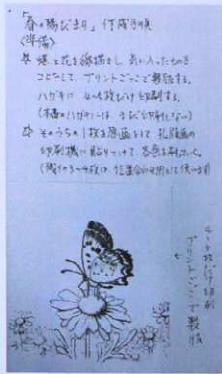 「春の陽だまり」作成手順
〈準備〉
蝶と花を線描きし、気に入ったものを
プリントごっこで製版する。
ハガキに 4〜5枚だけ印刷する。
(本番のハガキには、まだ印刷しない)
そのうちの1枚を原画をして 孔版画の
印刷機に貼りつけて、各色を刷っていく。
(残りの3〜4枚は、位置合わせ用として使います)
4〜5枚だけ印刷
プリントごっこで製版